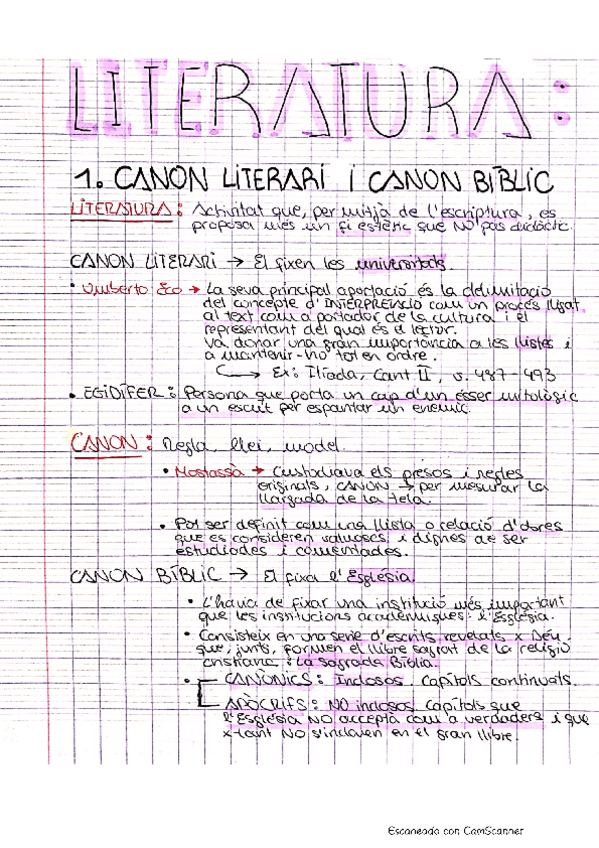 LITERATURA:
1. CANON LITERARI I CANON BÍBLIC
LITERATURA: Activitat que, per mitjà de l'escriptura, es
proposa més un fi estètic que NO pas didàctic.
CANON LITERARI → El fixen les universitats.
• Umberto Eco → La seva principal aportació és la delimitació
del concepte d'INTERPRETACIÓ com un procés lligat
al text com a portador de la cultura i el
representant del qual és el lector.
Va donar una gran importància a les llistes i
a mantenir-ho tot en ordre.
→ Ex: Ilíada, Cant II, v. 487-493
• EGIDÍFER: Persona que porta un cap d'un ésser mitològic
a un escut per espantar un enemic.
CANON: Regla, llei, model.
• Mostassà → Custodiava els pesos i regles
originals, CANON → per mesurar la
llargada de la tela.
• Pot ser definit com una llista o relació d'obres
que es consideren valuoses i dignes de ser
estudiades i comentades.
CANON BÍBLIC → El fixa l'Església.
• L'havia de fixar una institució més important
que les institucions acadèmiques: l'Església.
• Consisteix en una serie d'escrits revelats x Déu
que, junts, formen el llibre sagrat de la religió
cristiana: La Sagrada Bíblia.
• CANÒNICS: Inclosos. Capítols continuats.
APÒCRIFS: NO inclosos. Capítols que
l'Església NO accepta com a verdaders i que
x tant NO s'inclouen en el gran llibre.
Escaneado con CamScanner